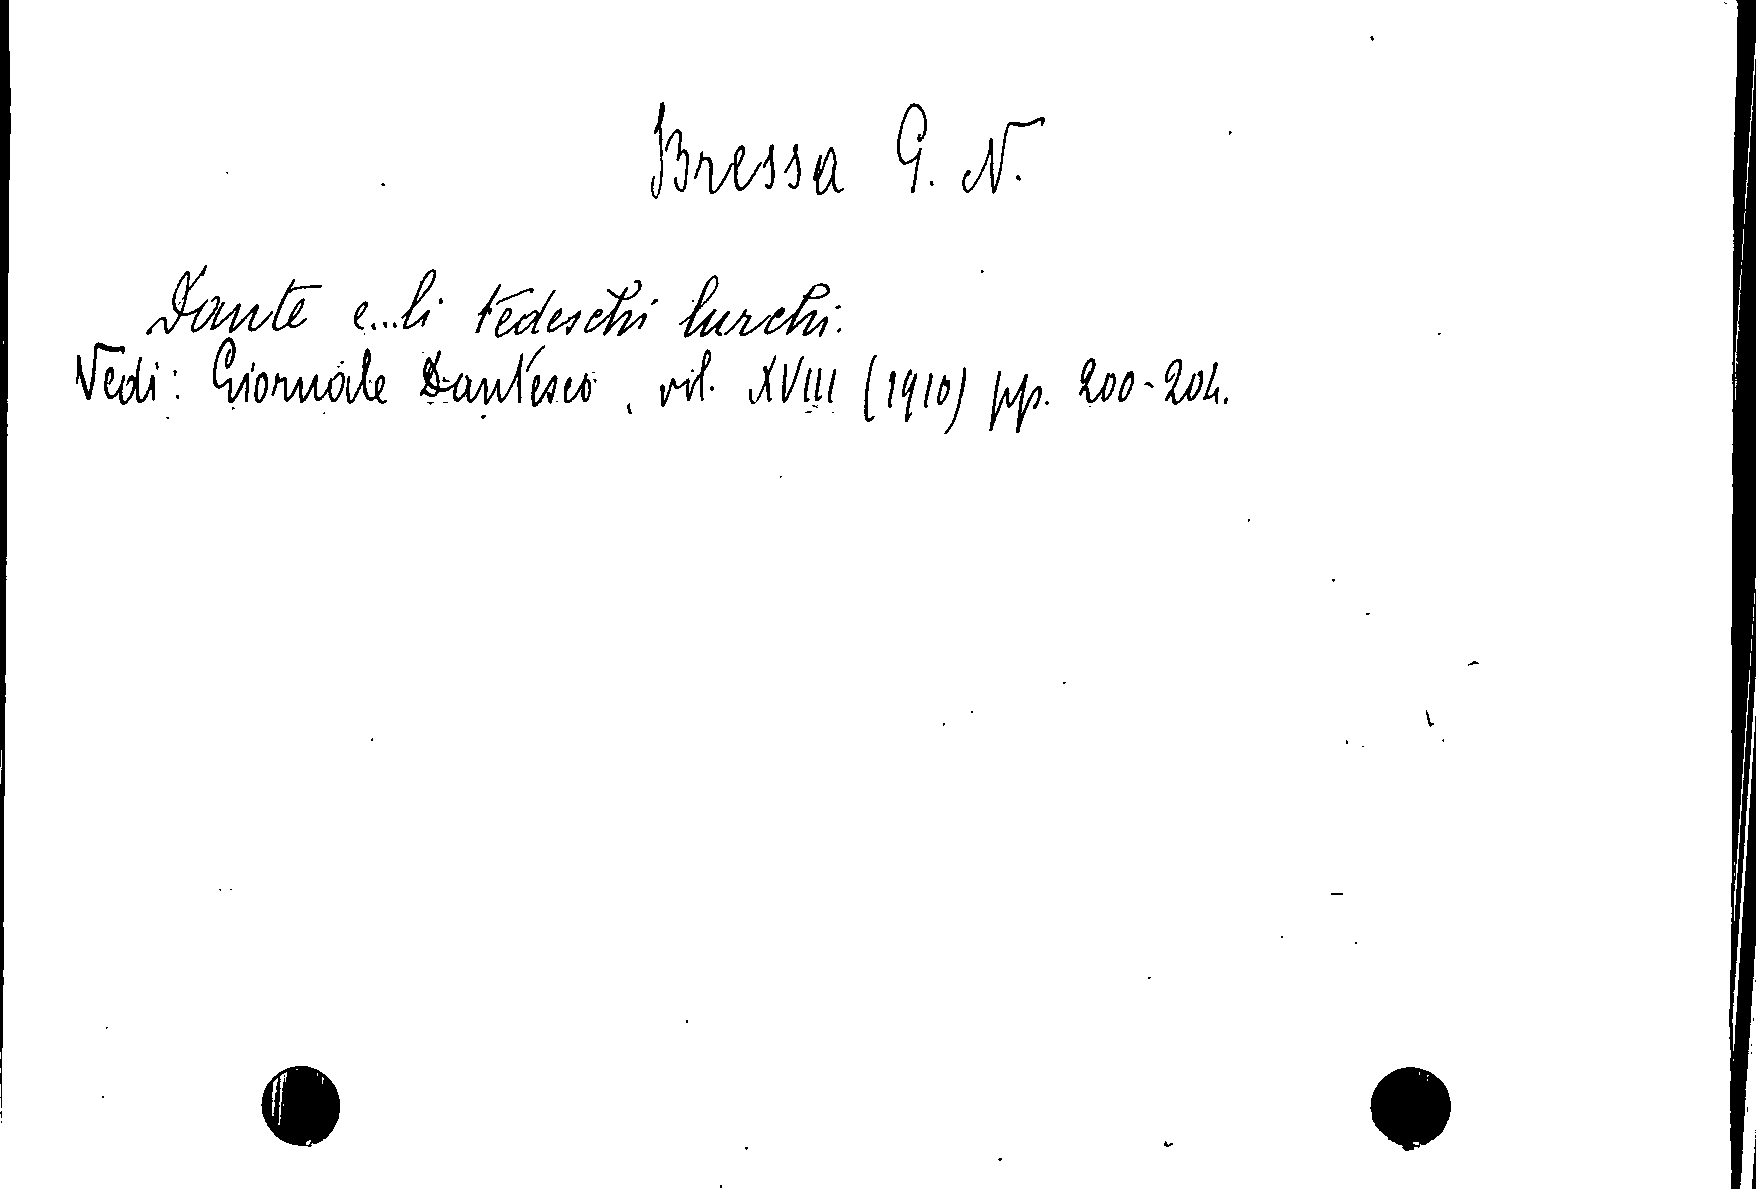 Bressa G. N.
Dante e...li tedeschi lurchi.
Vedi: Giornale Dantesco, vol. XVIII (1910) pp. 200-204.